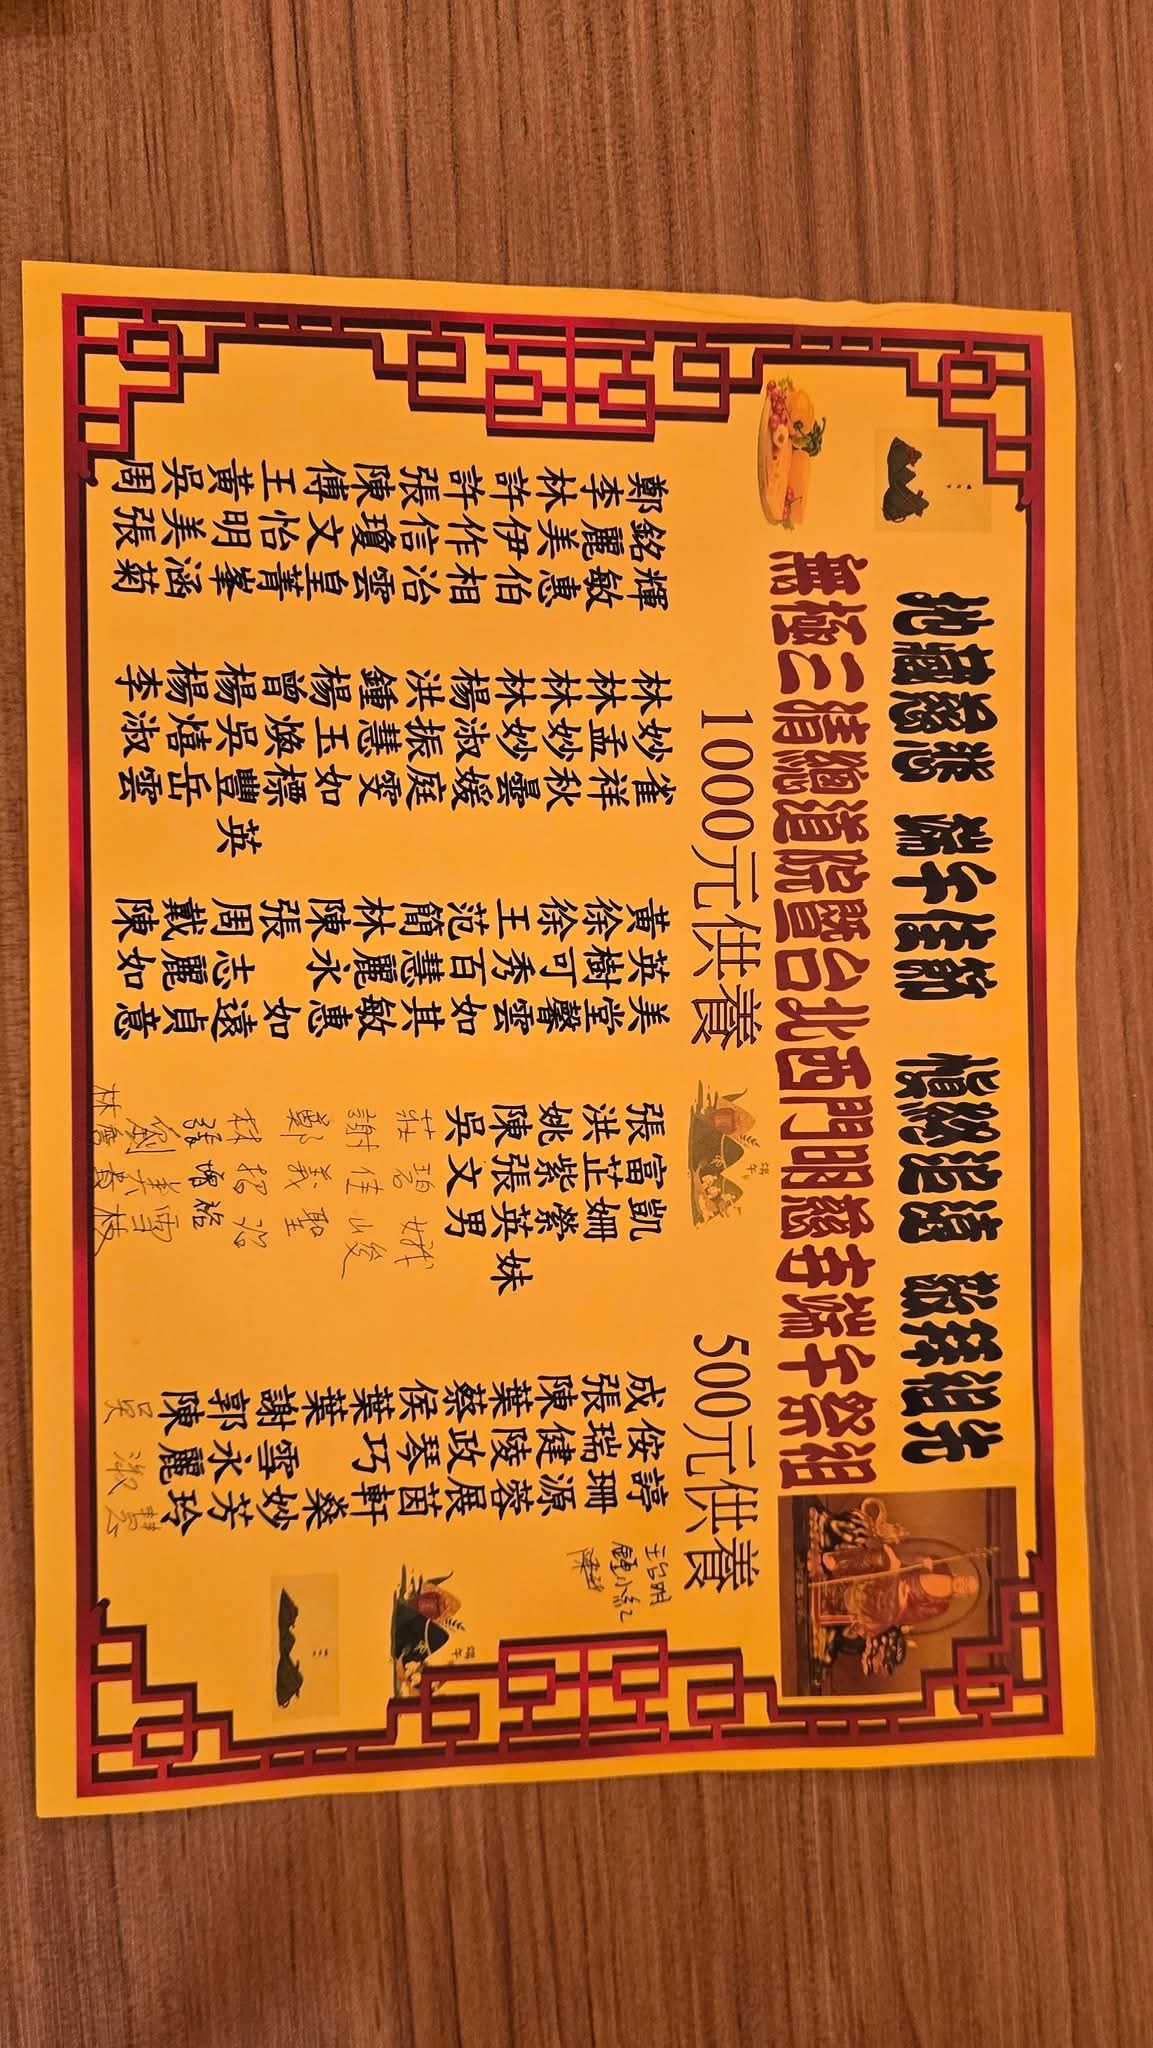 地藏慈悲 端午佳節 慎終追遠 敬拜祖先
無極三清總道院暨台北西門明慈寺端午祭祖
1000元供養 500元供養
端午
鄭銘輝 林妙雀 黃英美 張富凱 成侒諄
李麗敏 林孟祥 徐樹堂 洪芷姍 張瑞珊
林美惠 林妙秋 徐可馨 姚紫縈 陳健源
許伊伯 林妙曇 王秀雲 陳張英妹 葉陵蓉
許作相 楊淑媛 范百如 吳文男 蔡政展
張信治 洪振庭 簡慧其 莊碧娥 侯琴茵
陳瓊雲 鍾慧雯 林麗敏 謝佳峻 葉巧軒
傅文皇 楊玉如 陳永惠 鄭義聖 葉燊
王怡菁 曾煥標 張如 林招治 謝雪妙
黃明峯 楊吳豐英 周志遠 郭永芳
吳美涵 楊熺岳 戴麗貞 劉美雪 陳麗玲
周張菊 李淑雲 陳如意 林詹貴枝 吳淑慧
端午